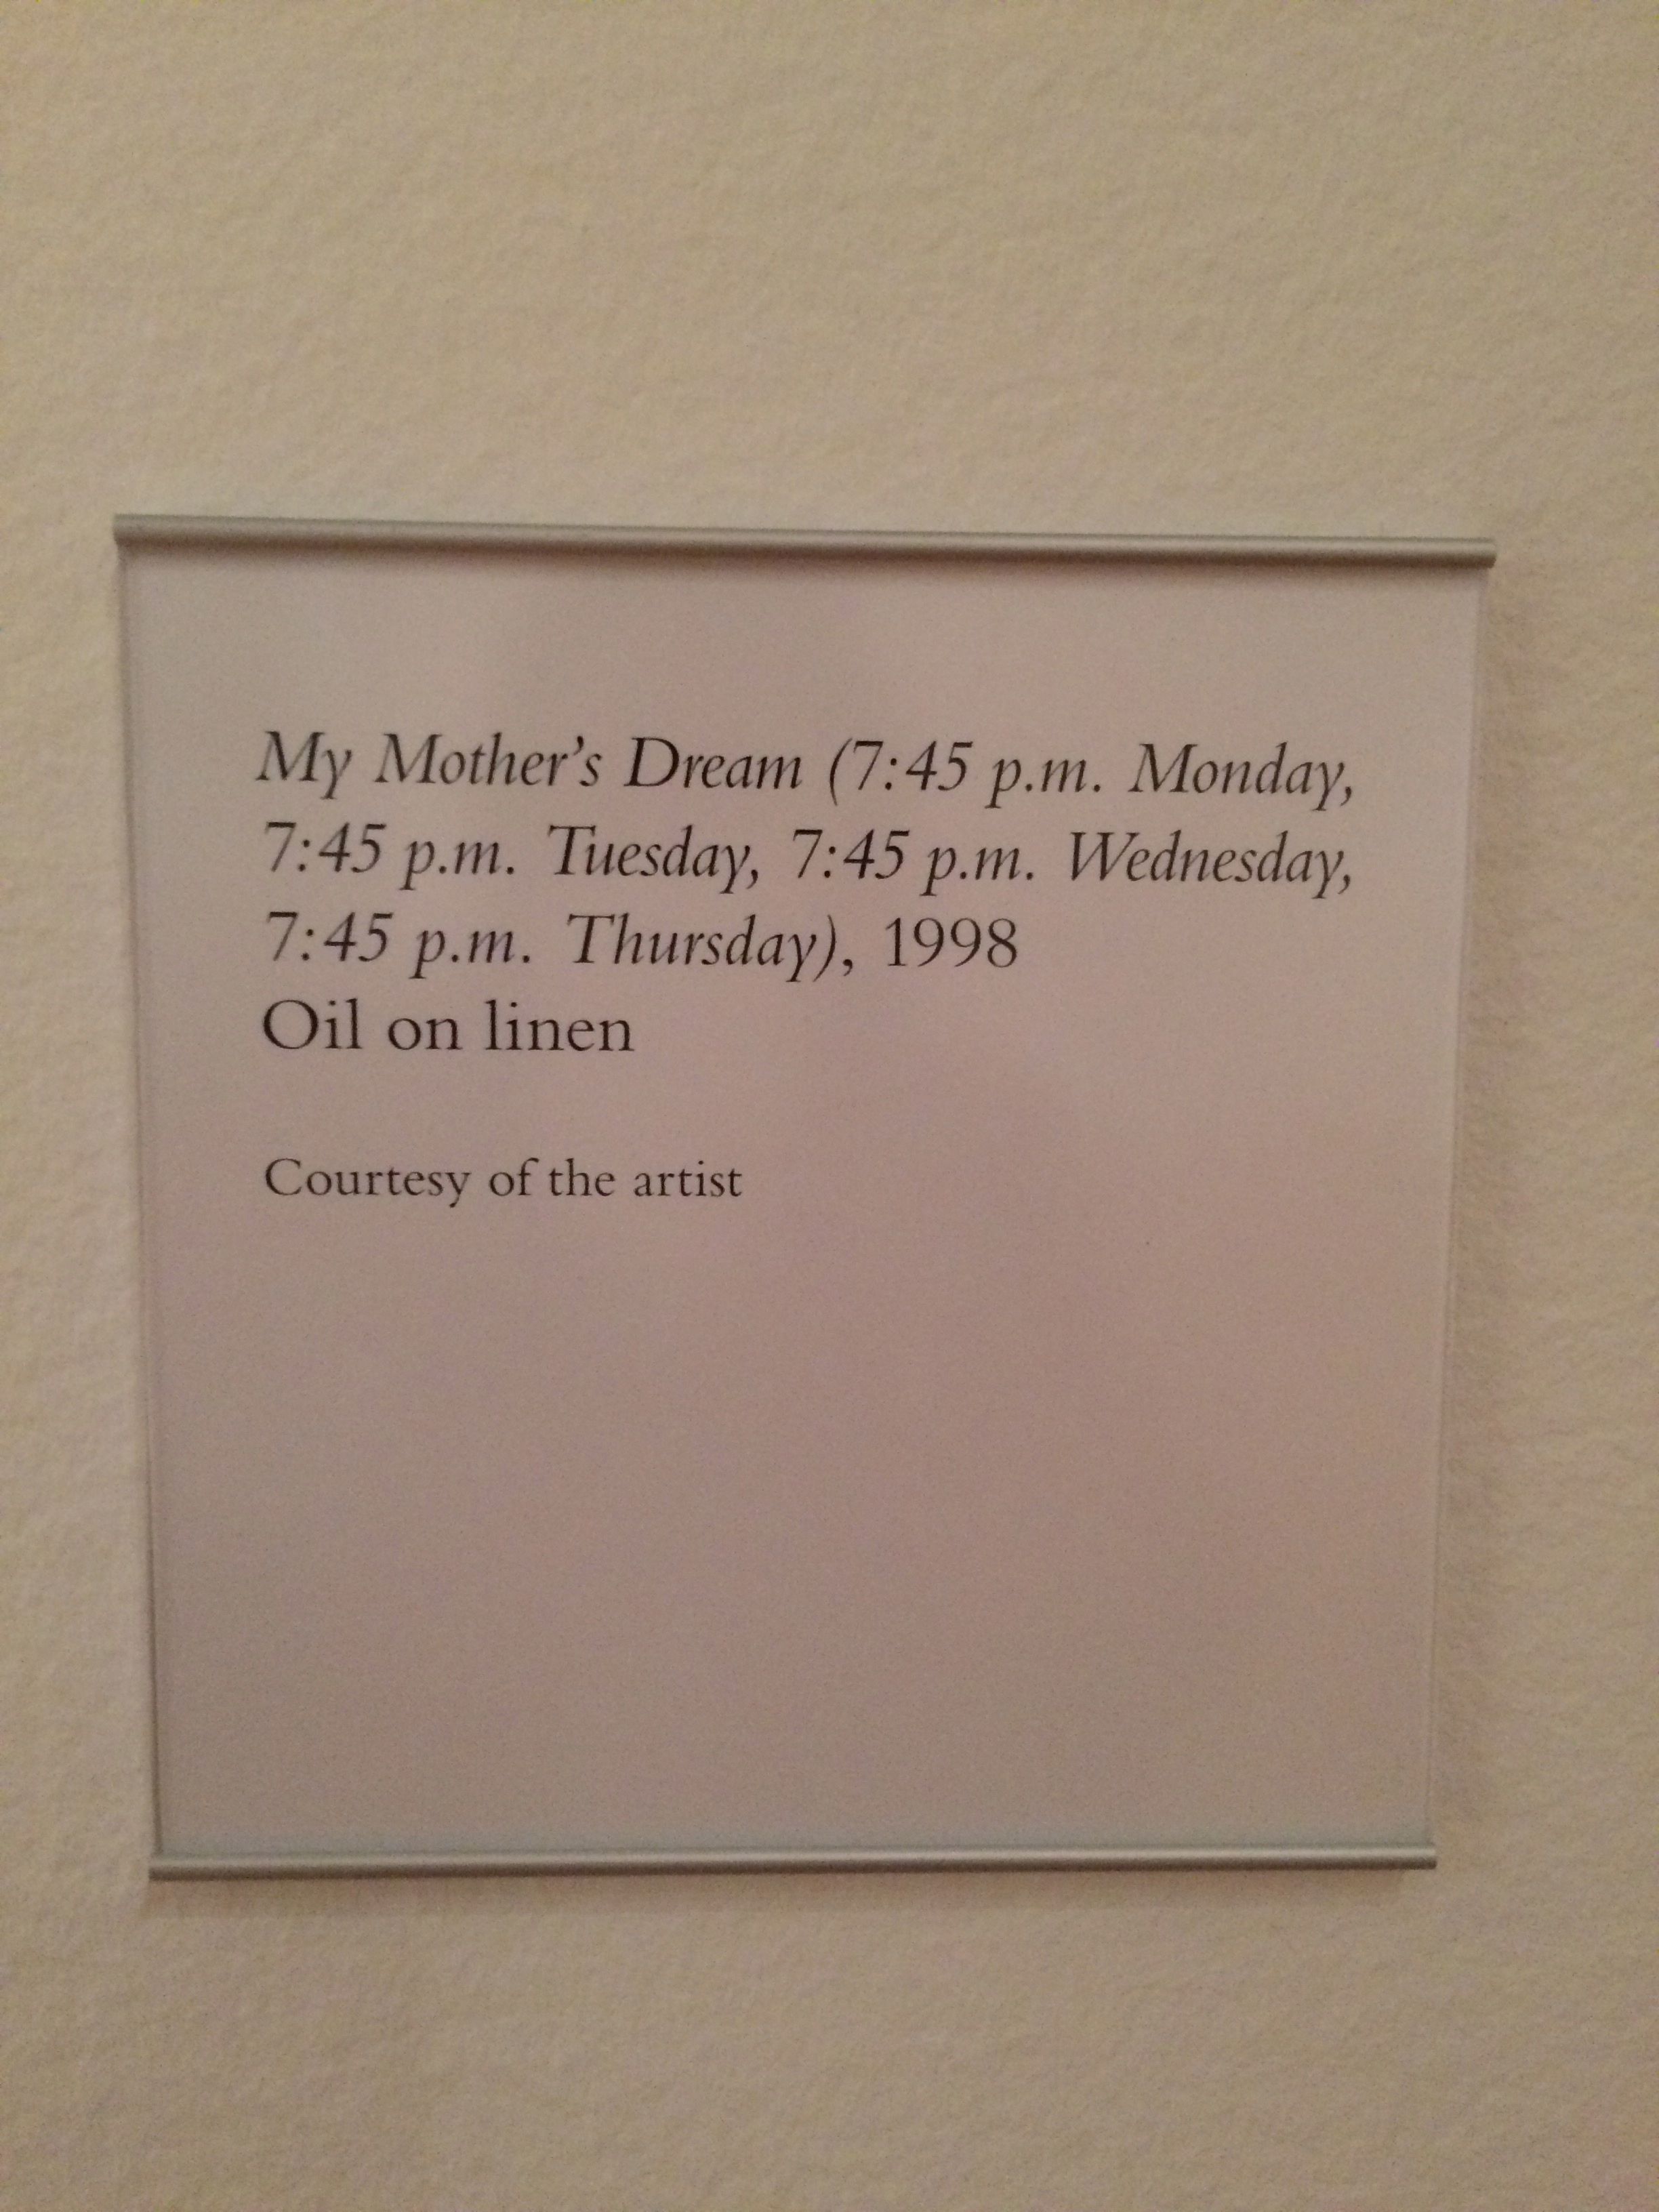 My Mother’s Dream (7:45 p.m. Monday,
7:45 p.m. Tuesday, 7:45 p.m. Wednesday,
7:45 p.m. Thursday), 1998
Oil on linen
Courtesy of the artist